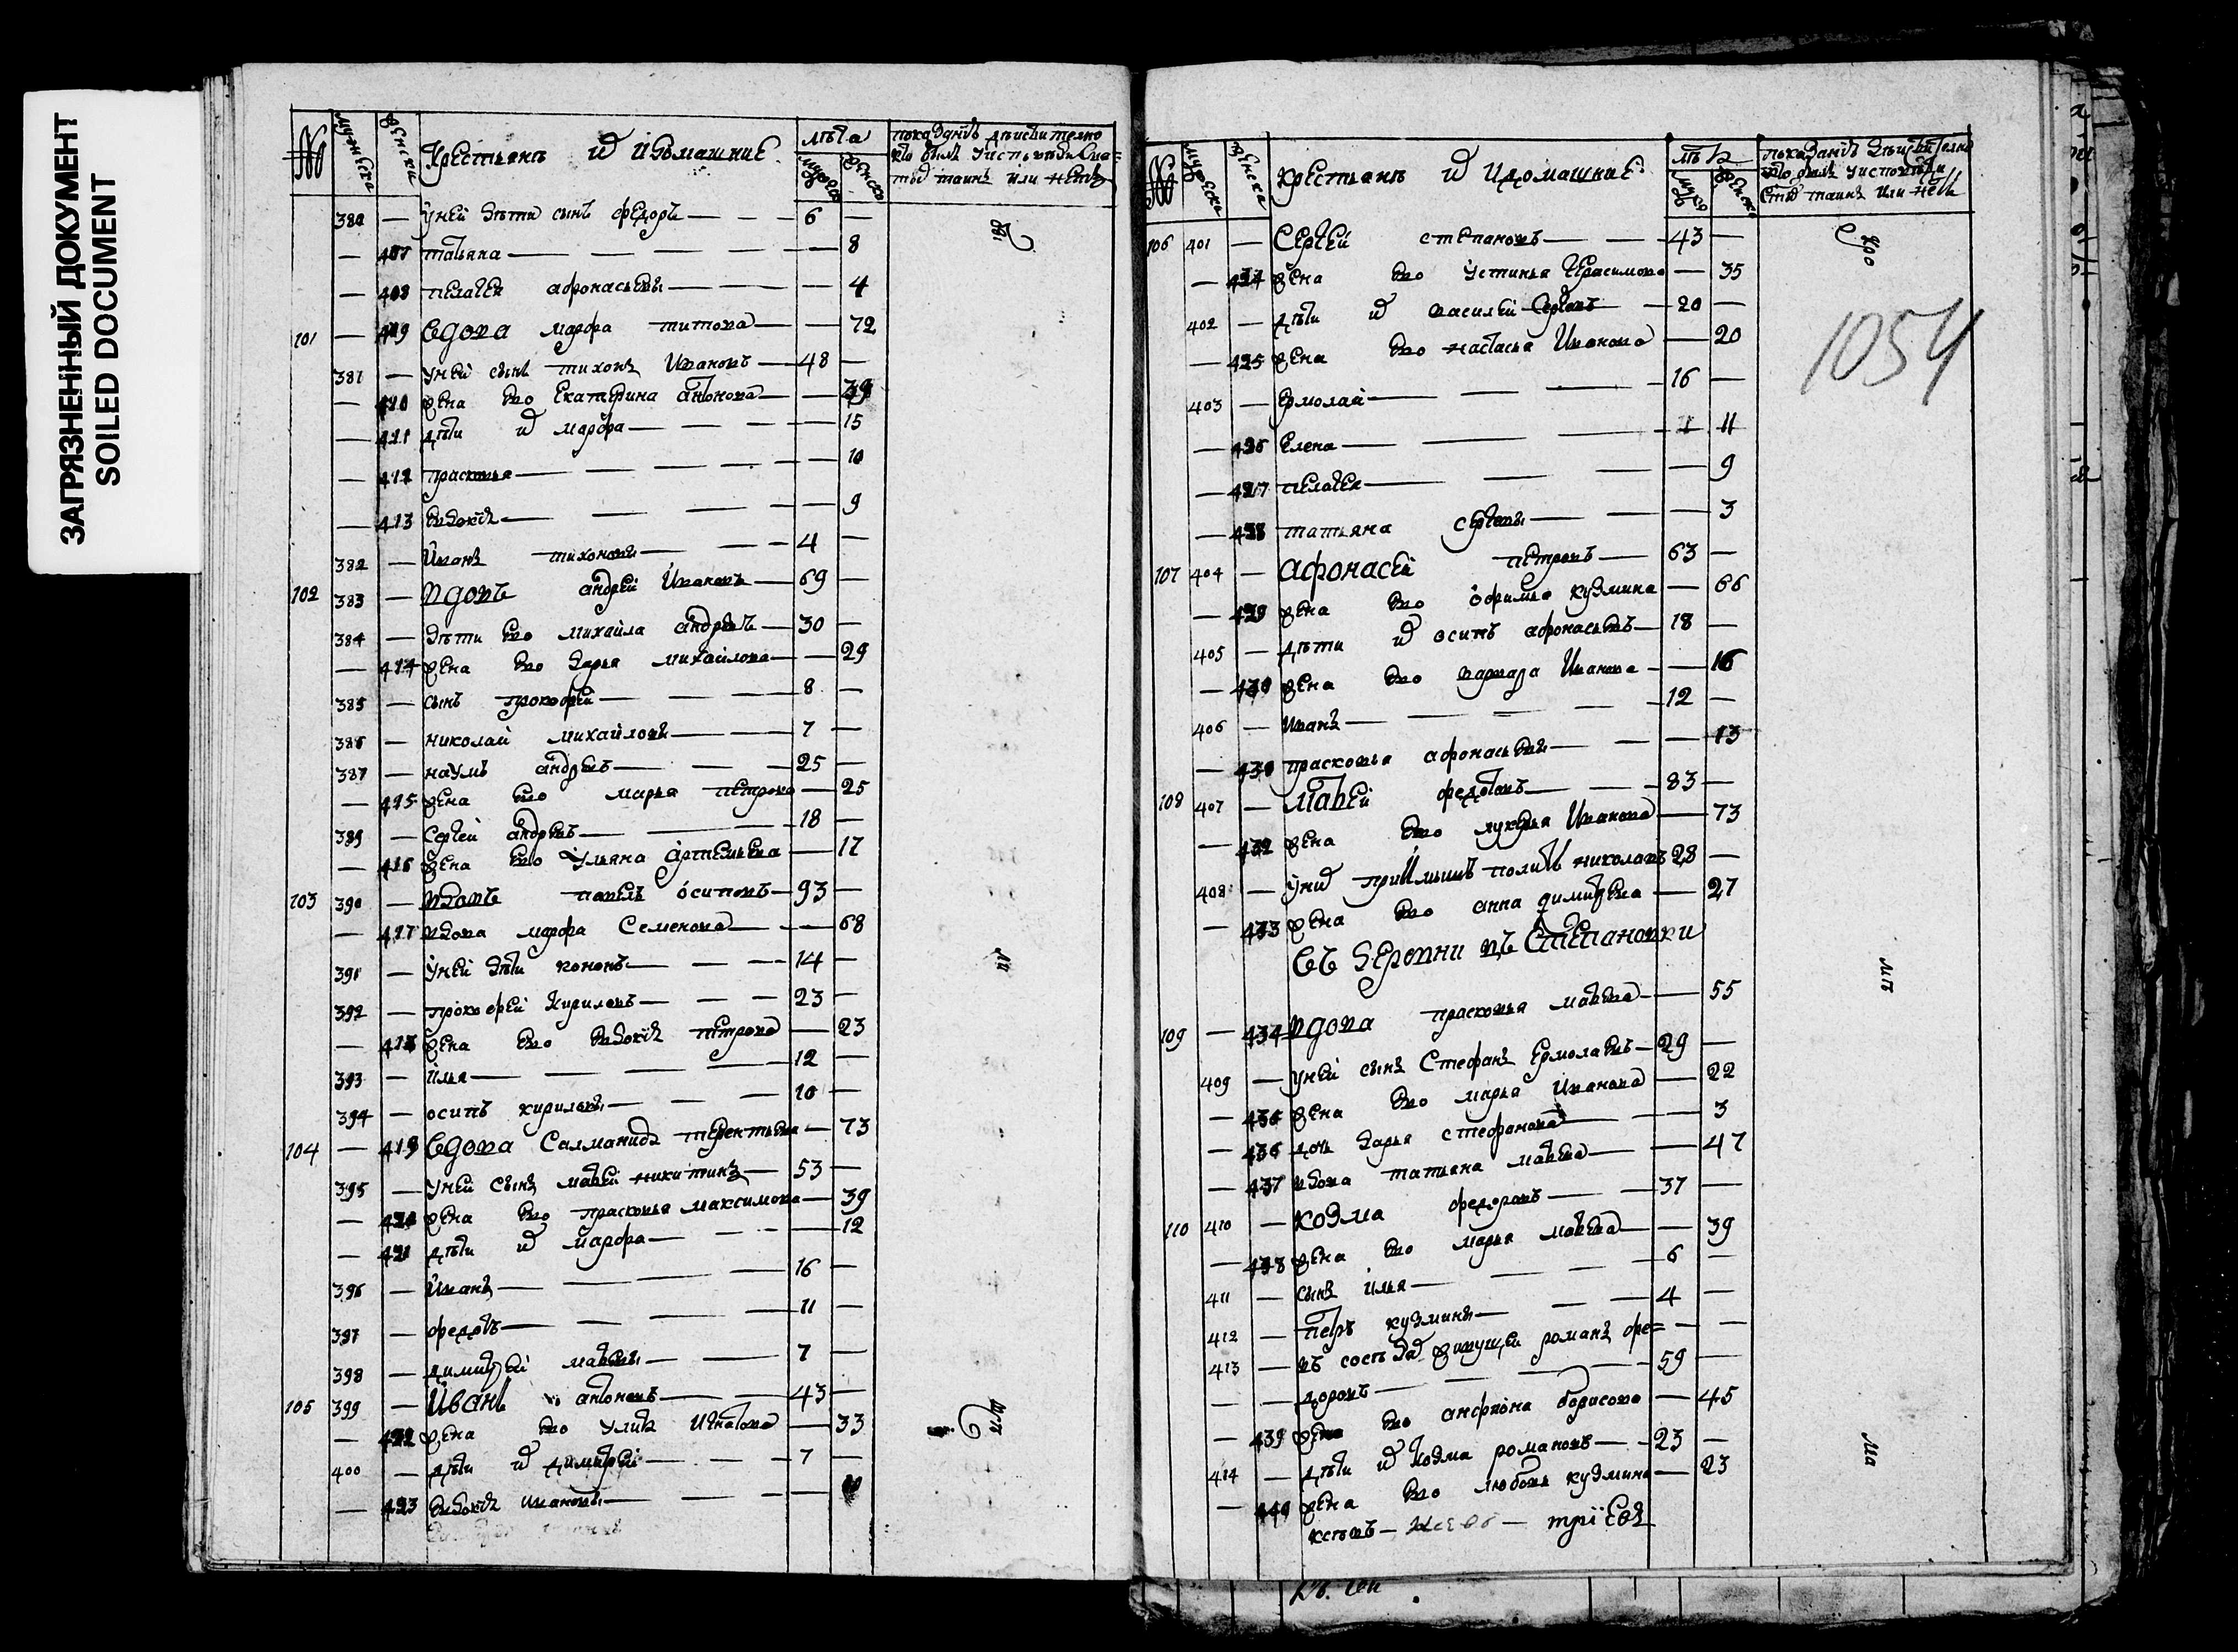 ЗАГРЯЗНЕННЫЙ ДОКУМЕНТ
SOILED DOCUMENT
№ мужеска женска Крестьянъ и ихъ домашние лѣта мужска женска показанiе дѣиствително
кто былъ у исповѣди свя=
тыхъ таинъ или нетъ
380 — У ней дѣти сынъ федоръ — 6 —
— 407 татьяна — — 8
— 408 пелагея афонасьевы — — 4
101 — 409 Вдова марфа титова — — 72
381 — У ней сынъ тихонъ Ивановъ — 48 —
— 410 жена ево Екатерина антонова — — 39
— 411 дѣти их марфа — — 15
— 412 прасковья — — 10
— 413 Евдокiя — — 9
382 — Иванъ тихоновы — 4 —
102 383 — вдовъ андрей Ивановъ — 69 —
384 — дѣти ево михайла андреевъ — 30 —
— 414 жена ево дарья михайлова — — 29
385 — сынъ прокофей — 8 —
386 — николай михайловы — 7 —
387 — наумъ андреевъ — 25 —
— 415 жена ево марья петрова — 25
389 — Сергей андреевъ — 18 —
— 416 жена ево Ульяна артемьева — 17
103 390 — вдовъ павелъ осиповъ — 93 —
— 417 вдова марфа Семенова — — 68
391 — У ней дѣти кононъ — 14 —
392 — прокофей Кириловъ — 23 —
— 418 жена ево Евдокiя петрова — 23
393 — илья — 12 —
394 — осипъ кириловы — 10 —
104 — 419 Вдова Салманида терентьева — 73
395 — У ней Сынъ матвей никитинъ — 53 —
— 420 жена ево прасковья максимова — 39
— 421 дѣти их марфа — — 12
396 — Иванъ — 16 —
397 — федотъ — 11 —
398 — димитрей матвеевы — 7 —
105 399 — Иванъ антоновъ — 43 —
— 422 жена ево Улита Игнатова — 33
400 — дѣти их димитрей — 7 —
— 423 Евдокiя ивановы — —
№ мужеска женска Крестьянъ и ихъ домашние лѣта мужска женска показанiе дѣиствителна
кто былъ у исповѣди
Стыхъ таинъ или нетъ
1054
106 401 — Сергей степановъ — 43 —
— 424 жена ево Устинья Герасимова — 35
402 — дѣти их василей Сергеевъ — 20 —
— 425 жена ево настасья Иванова — 20
403 — Ермолай — 16 —
— 426 Елена — — 11
— 427 пелагея — — 9
— 428 татьяна сергеевы — — 3
107 404 — Афонасей петровъ — 63 —
— 429 жена ево офимья кузмина — 66
405 — дѣти их осипъ афонасьевъ — 18 —
— 430 жена ево варвара Иванова — 16
406 — Иванъ — 12 —
— 430 прасковья афонасьевы — — 13
108 407 — Матвей федотовъ — 83 —
— 432 жена ево лукерья Иванова — 73
408 — У них приймышъ николаевъ 28 —
— 433 жена ево анна димитреева — 27
Въ деревни въ Степановки
109 — 434 вдова прасковья матвеева — 55
409 — У ней сынъ Стефанъ Ермолаевъ — 29 —
— 435 жена ево марья Иванова — 22
— 436 дочь дарья стефанова — — 3
— 437 вдова татьяна матвеева — 47
110 410 — Козма федоровъ — 37 —
— 438 жена ево марья матвеева — 39
411 — сынъ илья — 6 —
412 — петръ кузмины — 4 —
413 — въ сосѣдях живущей романъ фе= — —
— — доровъ — 59 —
— 439 жена ево борисова — 45
414 — дѣти их Козма романовъ — 23 —
— 440 жена ево любовь кузмина — 23